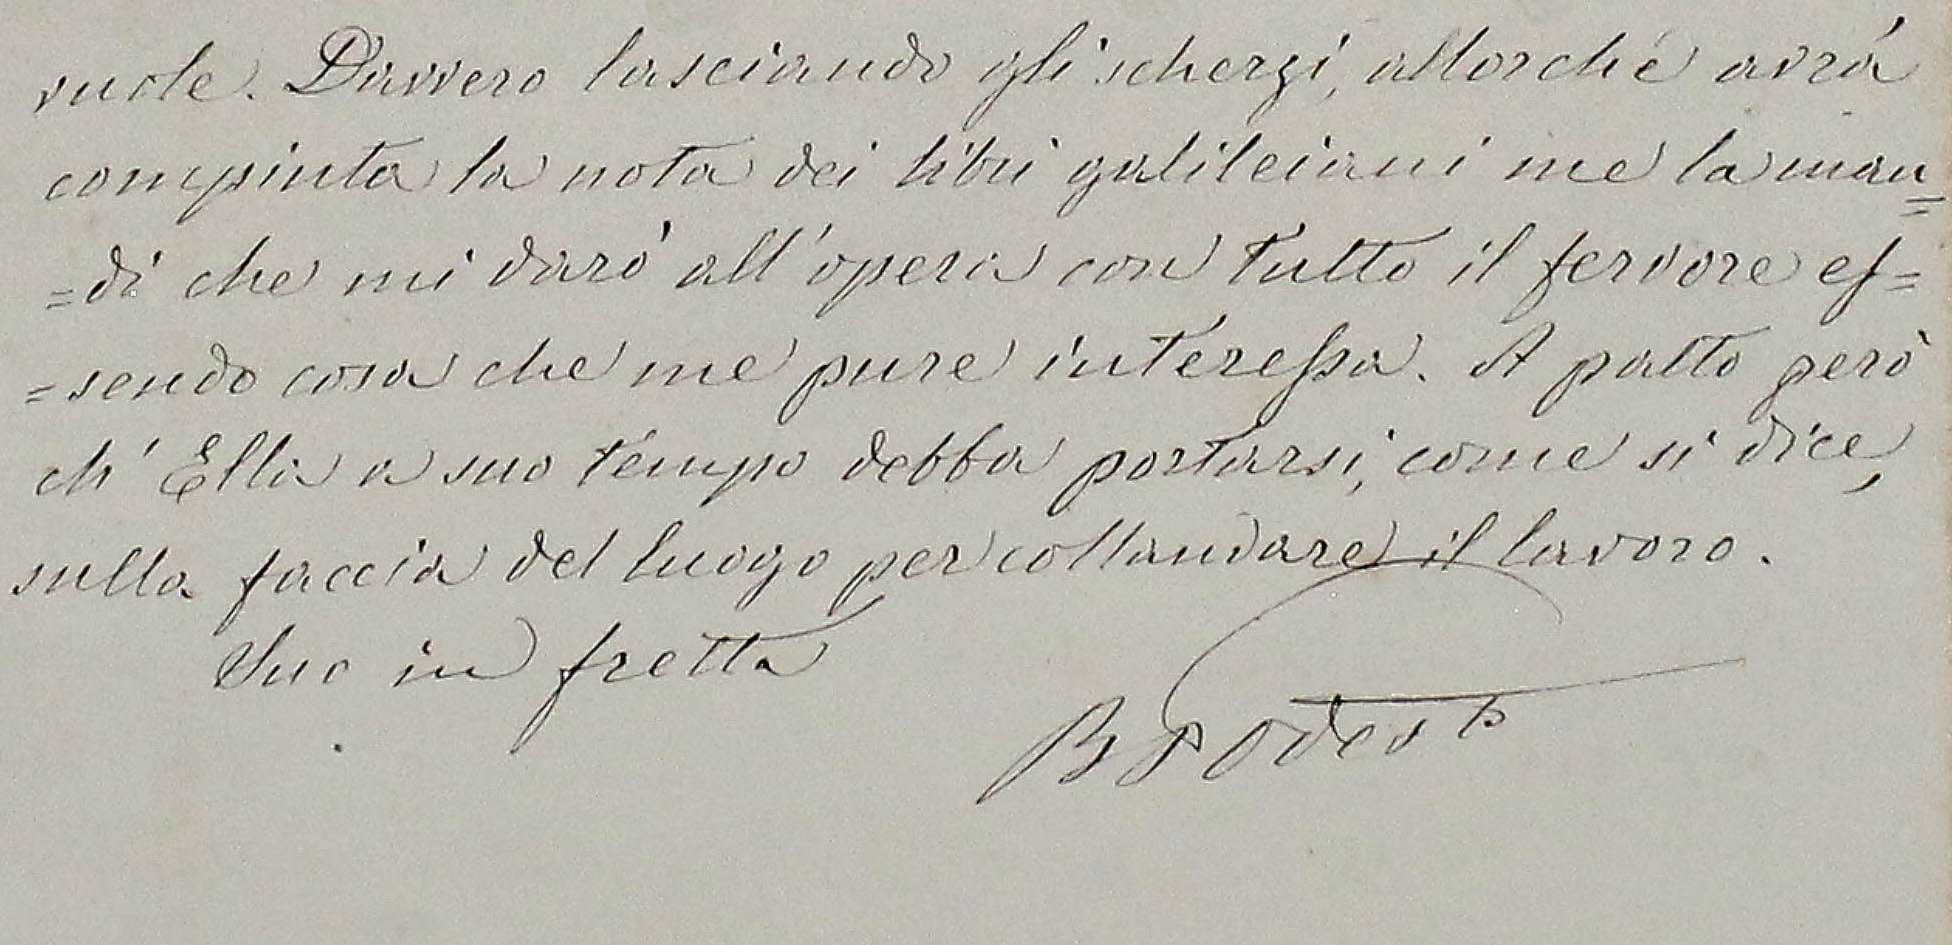 vuole. Davvero lasciando gli scherzi, allorché avrá
compiuta la nota dei libri galileiani me la man=
=di che mi daró all'opera con tutto il fervore es=
=sendo cosa che me pure interessa. A patto però
ch'Ella a suo tempo debba portarsi, come si dice,
sulla faccia del luogo per collaudare il lavoro.
Suo in fretta
B Podestà